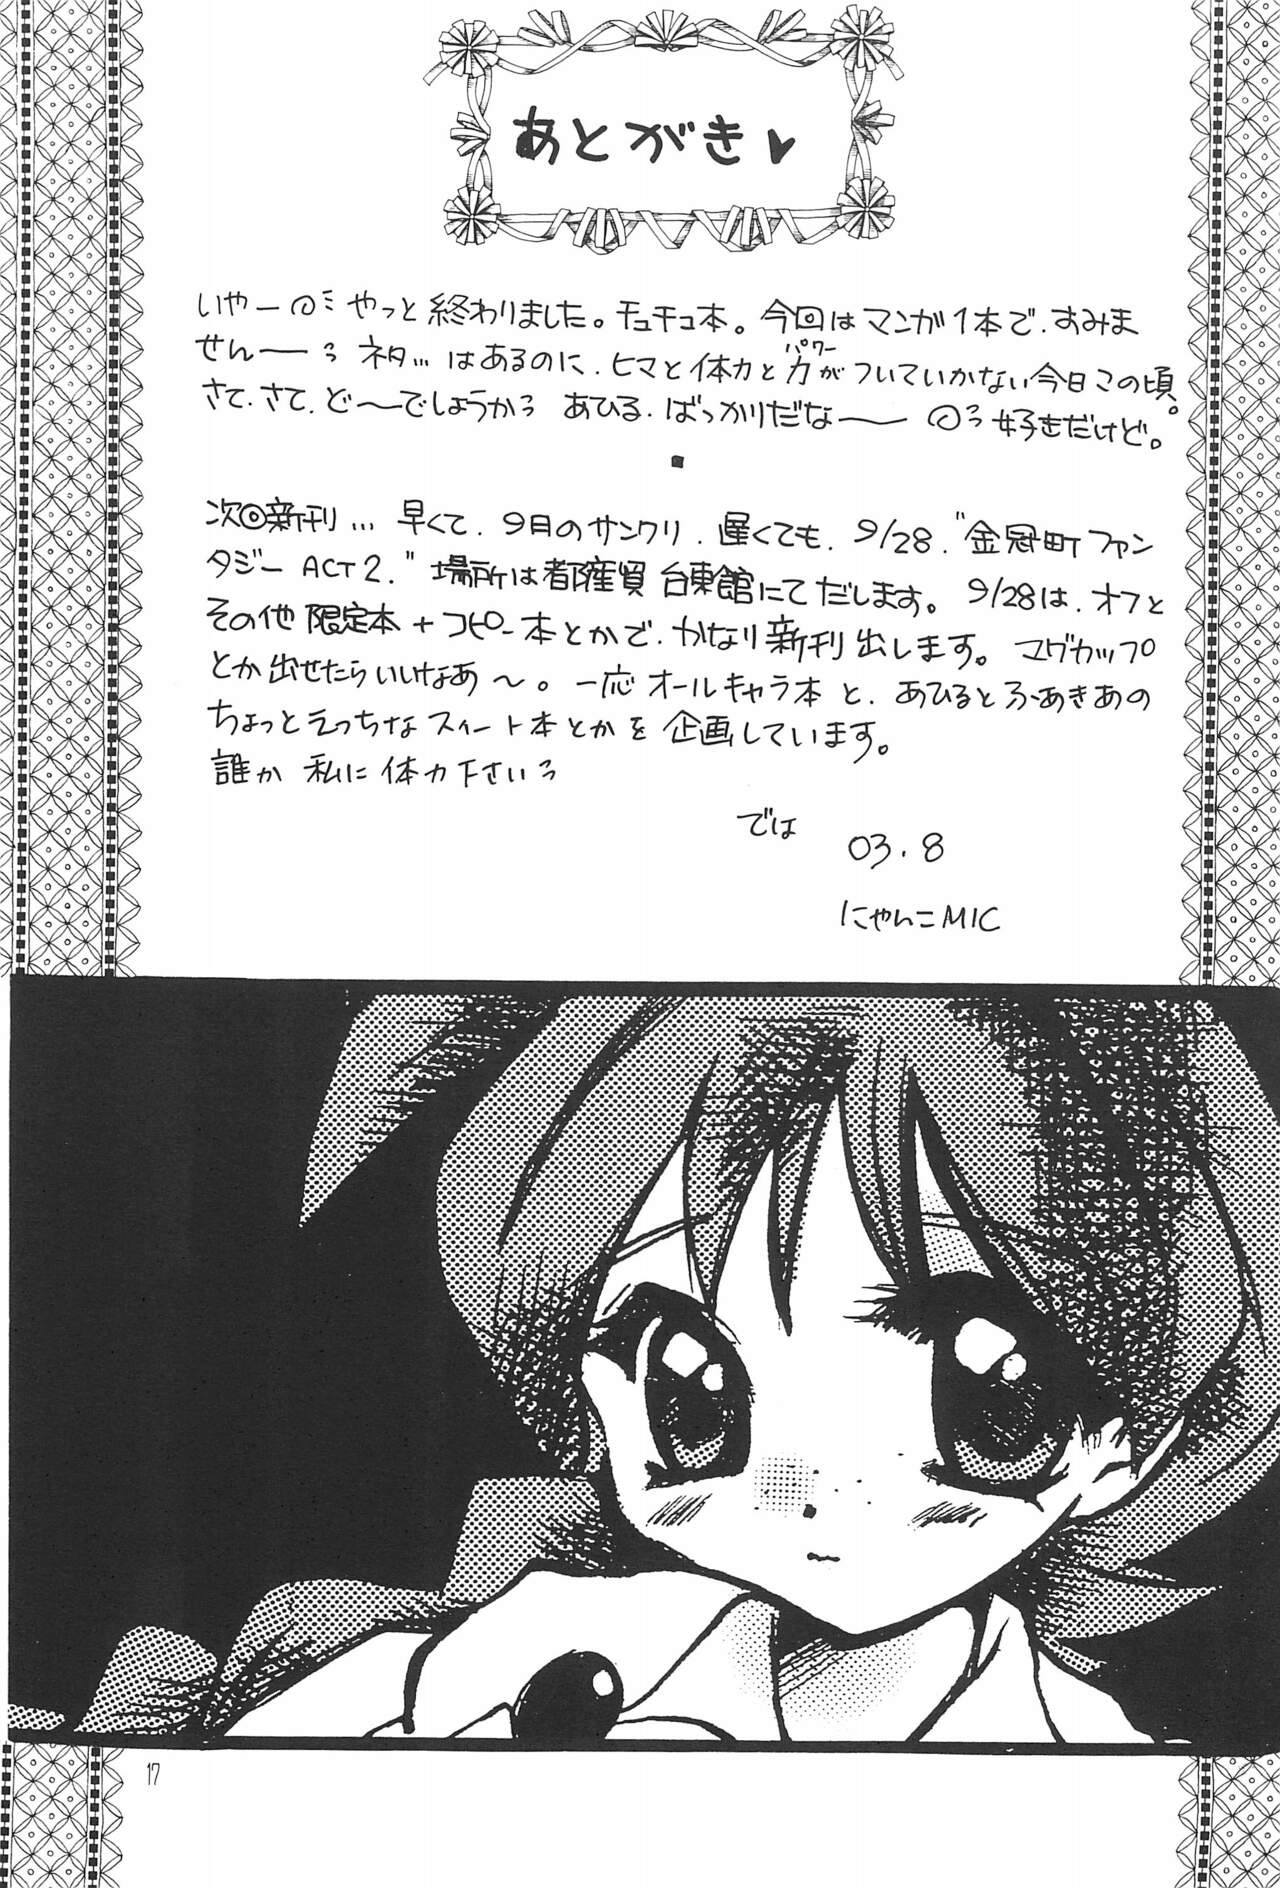 あとがき♥
いやー やっと終わりました。チュチュ本。今回はマンガ1本で、すみま
せん── ネタ…はあるのに、ヒマと体力と力がついていかない今日この頃。
パワー
さて、さて、ど〜でしょうか あひる、ばっかりだな── 好きだけど。
■
次回新刊… 早くて、9月のサンクリ、遅くても、9/28、"金冠町ファン
タジー ACT2."場所は都産貿 台東館にてだします。9/28は、オフと
その他 限定本+コピー本とかで、かなり新刊出します。マグカップ
とか出せたらいいなあ〜。一応オールキャラ本と、あひるとふぁきあの
ちょっとえっちなスィート本とかを企画しています。
誰か 私に 体力下さい
では
03.8
にゃんこMIC
17